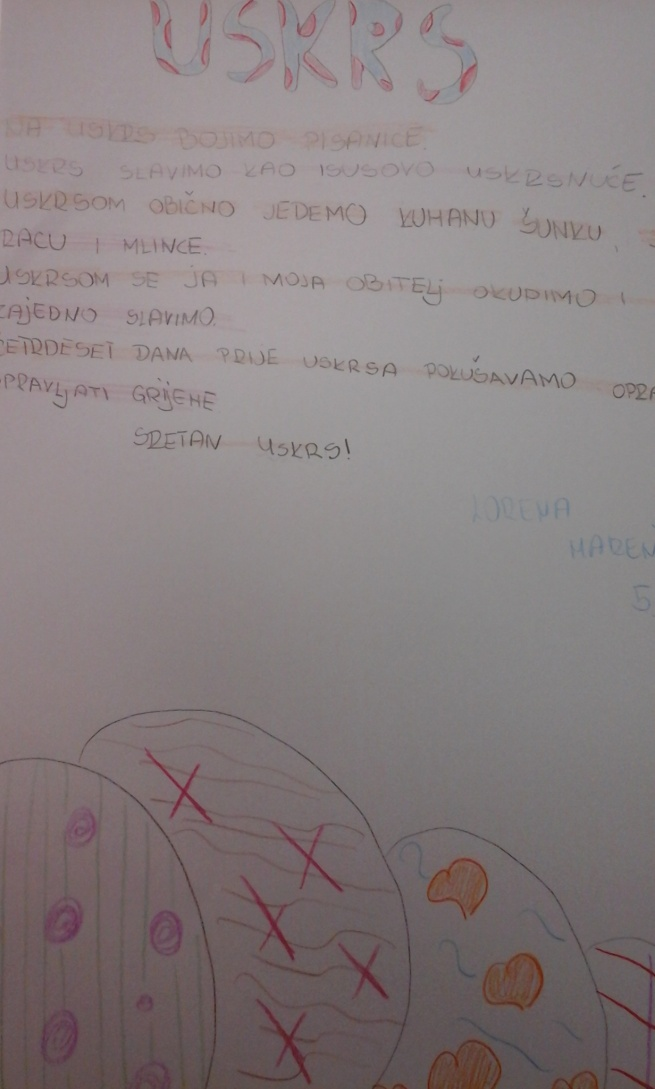 USKRS
NA USKRS BOJIMO PISANICE.
USKRS SLAVIMO KAO ISUSOVO USKRSNUĆE.
USKRSOM OBIČNO JEDEMO KUHANU ŠUNKU,
RACU I MLINCE.
USKRSOM SE JA I MOJA OBITELJ OKUPIMO I
ZAJEDNO SLAVIMO.
ČETRDESET DANA PRIJE USKRSA POKUŠAVAMO OPRA
SPRAVLJATI GRIJEHE
SRETAN USKRS!
LORENA
MAREN
5